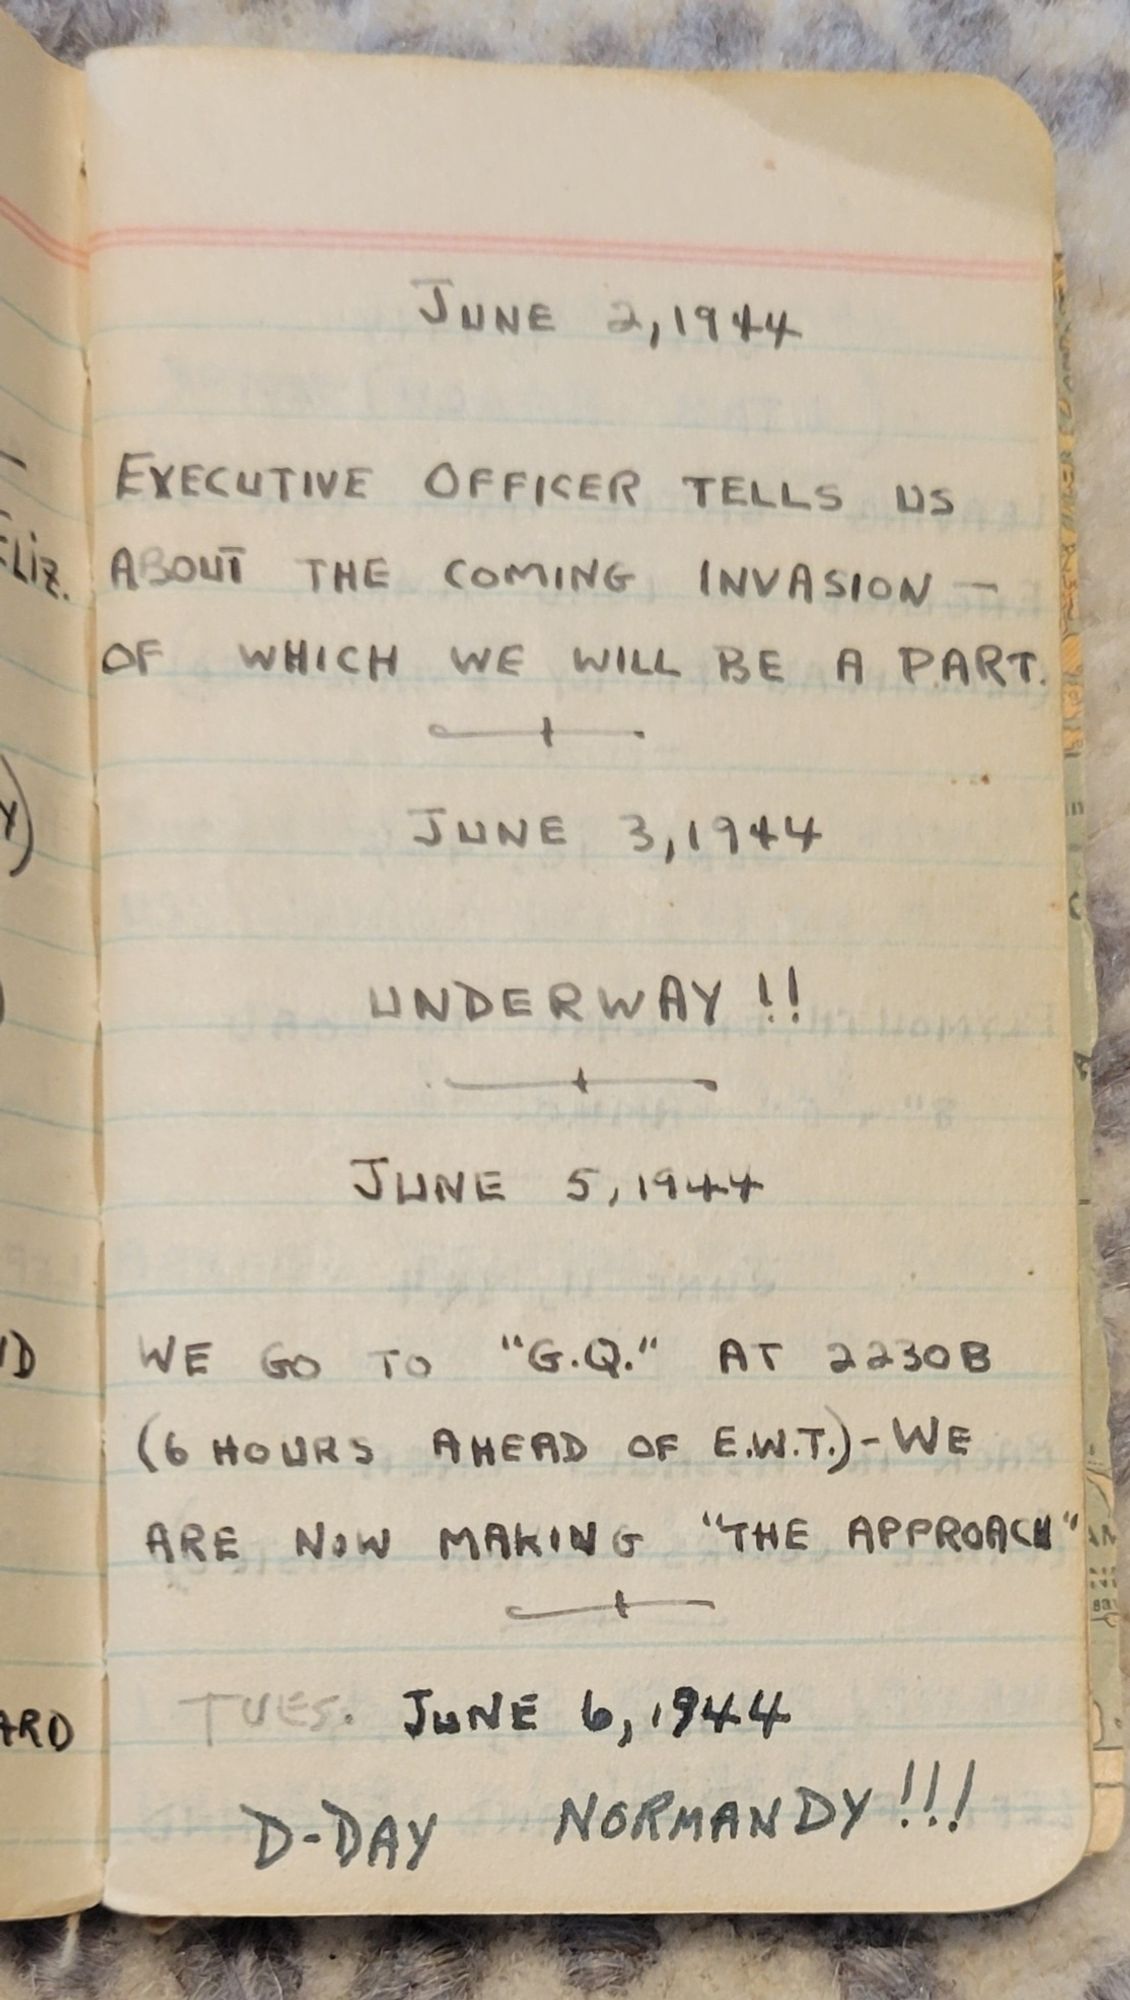 JUNE 2, 1944
EXECUTIVE OFFICER TELLS US
ABOUT THE COMING INVASION —
OF WHICH WE WILL BE A PART.
JUNE 3, 1944
UNDERWAY!!
JUNE 5, 1944
WE GO TO "G.Q." AT 2230B
(6 HOURS AHEAD OF E.W.T.) - WE
ARE NOW MAKING "THE APPROACH"
TUES. JUNE 6, 1944
D-DAY NORMANDY!!!